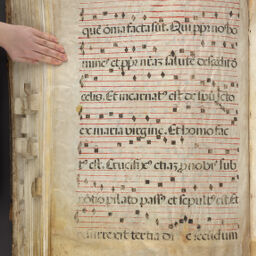 que om̄a facta sut. Qui pp̄ nos ho
mines et pp̄ nr̄az salute descēdit d
celis. Et incarnat⁹ est de spu scto
ex maria virgine. Et homo fac
t⁹ est. Crucifix⁹ etiaz p nobis sub
pōtio pilato pass⁹ et sepult⁹ est. Et
resurrexit tertia die secundum